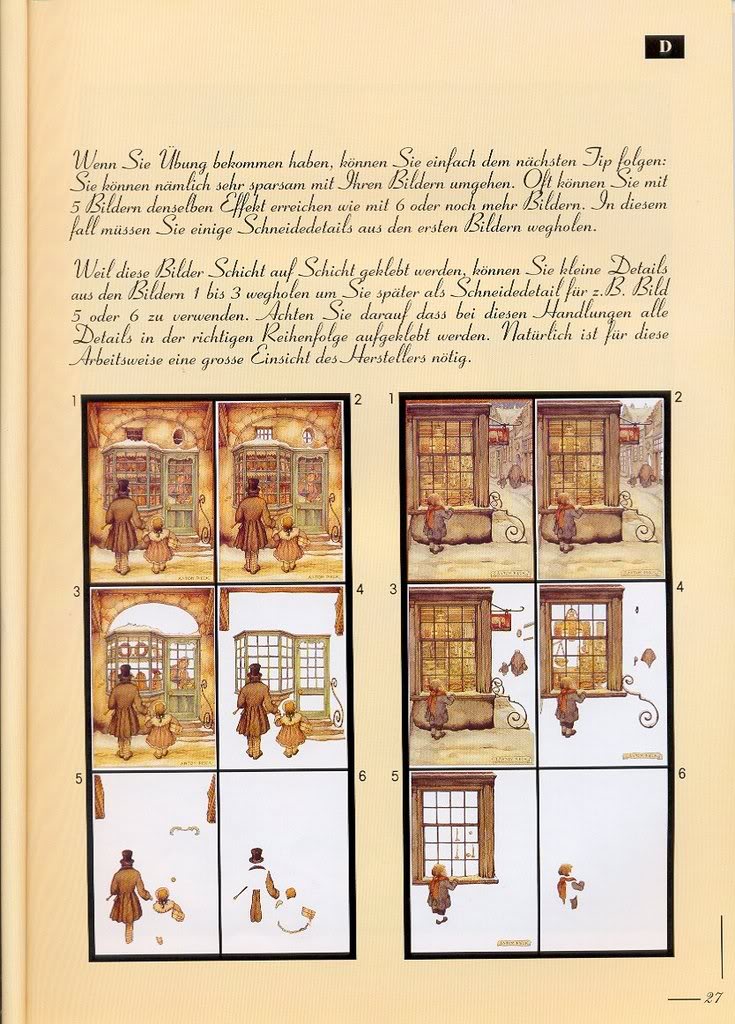 D
Wenn Sie Übung bekommen haben, können Sie einfach dem nächsten Tip folgen:
Sie können nämlich sehr sparsam mit Ihren Bildern umgehen. Oft können Sie mit
5 Bildern denselben Effekt erreichen wie mit 6 oder noch mehr Bildern. In diesem
fall müssen Sie einige Schneidedetails aus den ersten Bildern wegholen.
Weil diese Bilder Schicht auf Schicht geklebt werden, können Sie kleine Details
aus den Bildern 1 bis 3 wegholen um Sie später als Schneidedetail für z.B. Bild
5 oder 6 zu verwenden. Achten Sie darauf dass bei diesen Handlungen alle
Details in der richtigen Reihenfolge aufgeklebt werden. Natürlich ist für diese
Arbeitsweise eine grosse Einsicht des Herstellers nötig.
1 2
ANTON PIECK ANTON PIECK
3 4
ANTON PIECK
5 6
1 2
ANTON PIECK ANTON PIECK
3 4
ANTON PIECK ANTON PIECK
5 6
ANTON PIECK
27